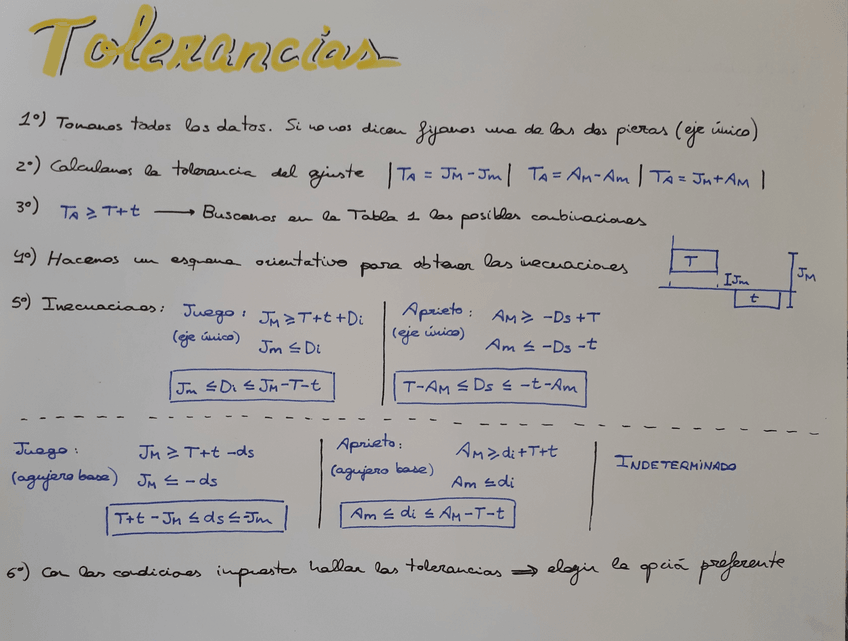 Tolerancias
1º) Tomamos todos los datos. Si no nos dicen fijamos una de las dos piezas (eje único)
2º) Calculamos la tolerancia del ajuste | TA = JM - Jm | TA = AM - Am | TA = JM + AM |
3º) TA ≥ T+t → Buscamos en la Tabla 1 las posibles combinaciones
4º) Hacemos un esquema orientativo para obtener las inecuaciones
T IJm t JM
5º) Inecuaciones:
Juego: JM ≥ T+t+Di
(eje único) Jm ≤ Di
Jm ≤ Di ≤ JM-T-t
Aprieto: AM ≥ -Ds+T
(eje único) Am ≤ -Ds-t
T-AM ≤ Ds ≤ -t-Am
Juego: JM ≥ T+t-ds
(agujero base) JM ≤ -ds
T+t-JM ≤ ds ≤ -Jm
Aprieto: AM ≥ di+T+t
(agujero base) Am ≤ di
Am ≤ di ≤ AM-T-t
INDETERMINADO
6º) Con las condiciones impuestas hallar las tolerancias ⇒ elegir la opció preferente